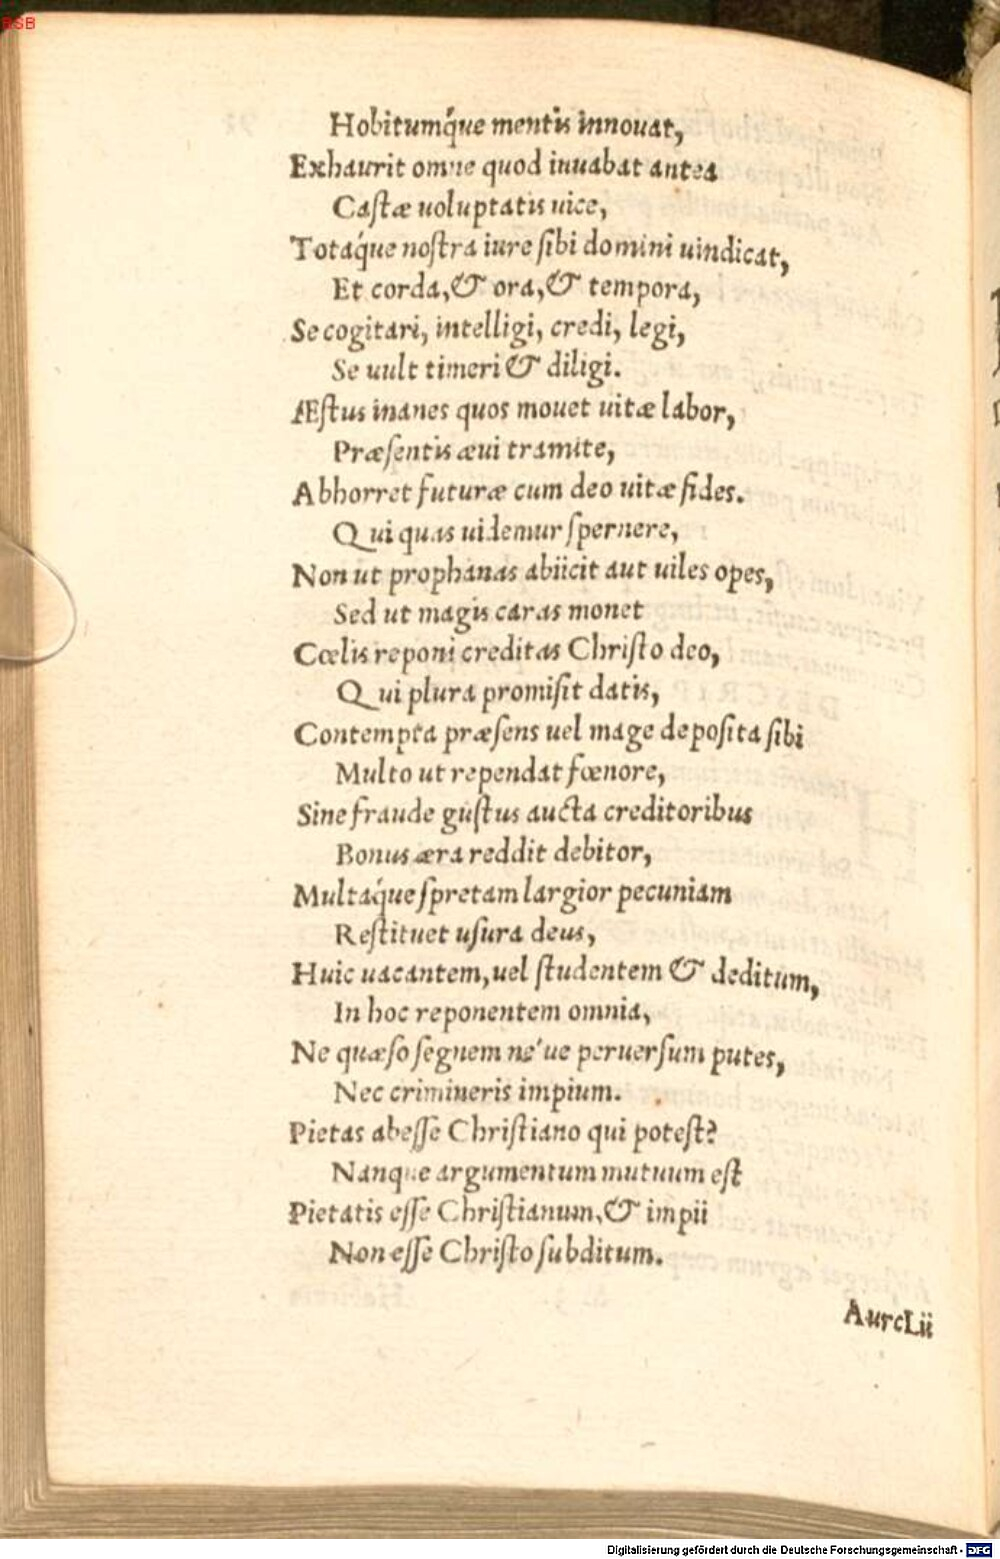 BSB
Hobitumq́ue mentis innouat,
Exhaurit omne quod iuuabat antea
Castæ uoluptatis uice,
Totaq́ue nostra iure sibi domini uindicat,
Et corda, & ora, & tempora,
Se cogitari, intelligi, credi, legi,
Se uult timeri & diligi.
Æstus inanes quos mouet uitæ labor,
Præsentis æui tramite,
Abhorret futuræ cum deo uitæ fides.
Qui quas uidemur spernere,
Non ut prophanas abiicit aut uiles opes,
Sed ut magis caras monet
Cœlis reponi creditas Christo deo,
Qui plura promisit datis,
Contempta præsens uel mage deposita sibi
Multo ut rependat fœnore,
Sine fraude gustus aucta creditoribus
Bonus æra reddit debitor,
Multaq́ue spretam largior pecuniam
Restituet usura deus,
Huic uacantem, uel studentem & deditum,
In hoc reponentem omnia,
Ne quæso segnem ne'ue peruersum putes,
Nec crimineris impium.
Pietas abesse Christiano qui potest?
Nanque argumentum mutuum est
Pietatis esse Christianum, & impii
Non esse Christo subditum.
AureLii
Digitalisierung gefördert durch die Deutsche Forschungsgemeinschaft - DFG